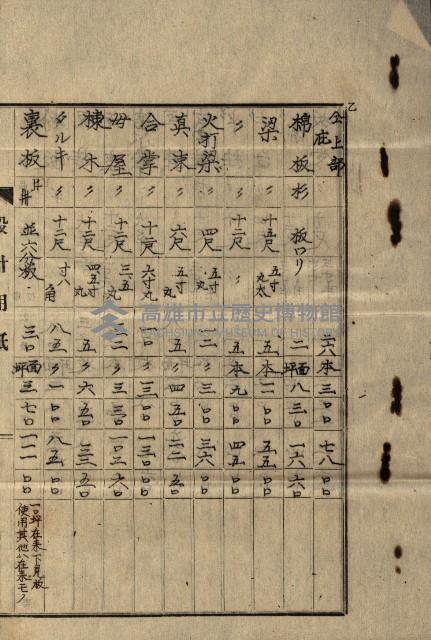 乙
公上部
庇 二六本 三〇〇 七八〇〇
棉板 杉 板ワリ 二面坪 八三〇 一六六〇
梁 〃 十五尺 五寸丸太 五本 一一〇〇 五五〇〇
〃 〃 十二尺 〃 五本 九〇〇 四五〇〇
火打梁 〃 四尺 五寸丸 一二〃 三〇〇 三六〇〇
真束 〃 六尺 五寸丸 五〃 四五〇 二二五〇
合掌 〃 十二尺 六寸丸 一〇〃 一三〇〇 一三〇〇〇
母屋 〃 十二尺 三、五丸 〃 三三〇
棟木 〃 十二尺 四五寸丸 五〃 六五〇
タルキ 〃 十二尺 寸八角 八五〃 一〇〇 八五〇〇
裏板 〃 並六分板 三〇面坪 三七〇 一一一〇〇
一〇坪在来下見板
使用其他ハ在来モノ
設計用紙
高雄市立歷史博物館
KAOHSIUNG MUSEUM OF HISTORY